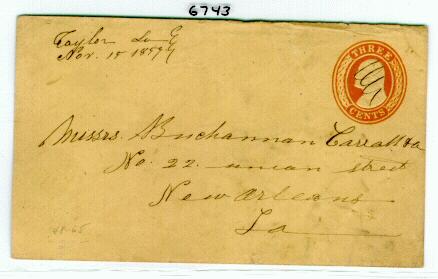 6743
Taylor La
Nov. 15 1859
THREE
CENTS
Messrs. Buchannan Carroll & Co
No. 22. union street
New Orleans
La
48-65